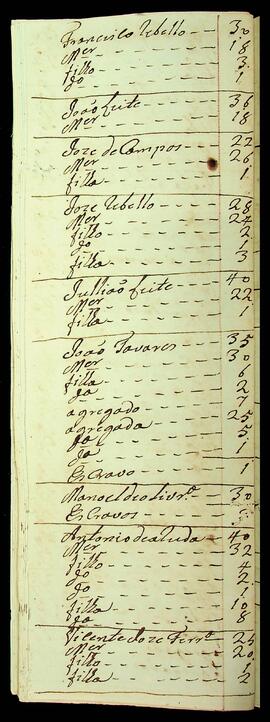 Francisco Rebello — 30
Mer — 18
filho — 3
do — 1
João Leite — 36
Mer — 18
Joze de Campos — 22
Mer — 26
filha — 1
Joze Rebello — 28
Mer — 22
filho — 2
do — 1
filha — 3
Jullião Leite — 40
Mer — 22
filha — 1
João Tavares — 35
Mer — 30
filho — 6
filha — 2
da — 7
agregado — 25
agregada — 5
da — 1
da
Escravo — 1
Manoel de olivra. — 30
Escravos
Antonio de aruda — 40
Mer — 32
filho — 4
do — 2
do — 1
filha — 10
da — 8
Vicente Joze Ferra. — 25
Mer — 20
filho — 1
filha — 2